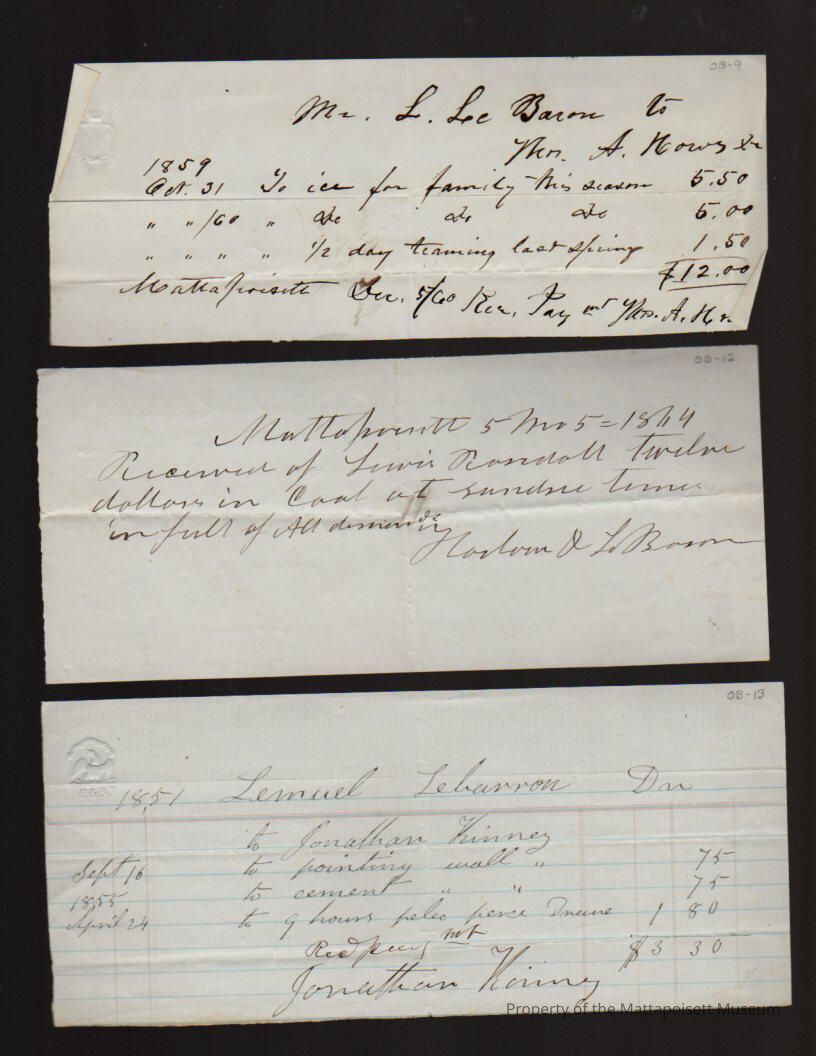 OB-9
Mr. L. Le Baron to
Thos. A. Hows Dr
1859
Oct. 31 To ice for family this season 5.50
" " /60 " Do Do Do 5.00
" " " " 1/2 day teaming last spring 1.50
$12.00
Mattapoisett Dec. 5/60 Rec. Pay mt Thos. A. H
OB-12
Mattapoisett 5 Mo 5 = 1864
Received of Lewis Randall twelve
dollars in Coal at times
in full of All demands
Harlow & LeBaron
OB-13
1851 Lemuel Lebarron Dr
to Jonathan Kinney
Sept 16 to pointing wall " 75
to cement " " 75
1855
April 24 to 9 hours 1 80
Recd mt $3 30
Jonathan Kinney
Property of the Mattapoisett Museum